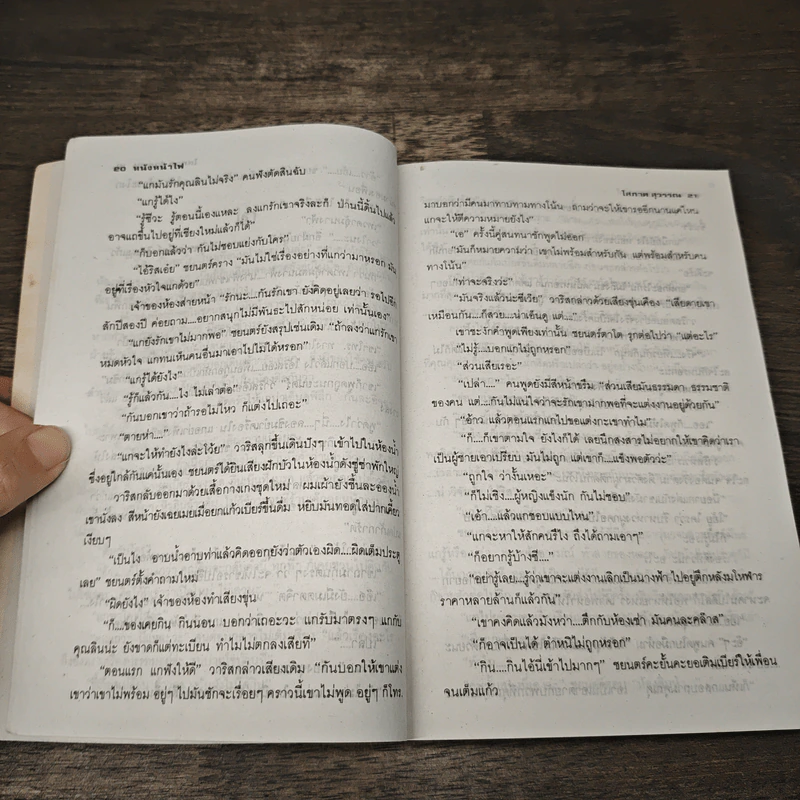 ๙๐ หนังหน้าไฟ
"แกมันรักคุณลินไม่จริง" คนฟังตัดสินฉับ
"แกรู้ได้ไง"
"รู้ซีวะ รู้ตอนนี้เองแหละ ลงแกรักเขาจริงละก็ ป่านนี้ดิ้นไปแล้ว
อาจแถขึ้นไปอยู่ที่เชียงใหม่แล้วก็ได้"
"ก็บอกแล้วว่า กันไม่ชอบแย่งกับใคร"
"ไอ้ริสเอ๋ย" ชยนตร์คราง "มันไม่ใช่เรื่องอย่างที่แกว่ามาหรอก มัน
อยู่ที่เรื่องหัวใจแกด้วย"
เจ้าของห้องส่ายหน้า "รักนะ....กันรักเขา ยังคิดอยู่เลยว่า รอไปอีก
สักปีสองปี ค่อยถาม....อยากสนุกไม่มีพันธะไปสักหน่อย เท่านั้นเอง"
"แกยังรักเขาไม่มากพอ" ชยนตร์ยังสรุปเช่นเดิม "ถ้าลงว่าแกรักเขา
หมดหัวใจ แกทนเห็นคนอื่นมาเอาไปไม่ได้หรอก"
"แกรู้ได้ยังไง"
"รู้ก็แล้วกัน....ไง ไม่เล่าต่อ"
"กันบอกเขาว่าถ้ารอไม่ไหว ก็แต่งไปเถอะ"
"ตายห่า...."
"แกจะให้ทำยังไงล่ะโว้ย" วาริสลุกขึ้นเดินปังๆ เข้าไปในห้องน้ำ
ซึ่งอยู่ใกล้กันแค่นั้นเอง ชยนตร์ได้ยินเสียงฝักบัวในห้องน้ำดังซู่ซ่าพักใหญ่
วาริสกลับออกมาด้วยเสื้อกางเกงชุดใหม่ ผมเผ้ายังชื้นละอองน้ำ
เขานั่งลง สีหน้ายังเฉยเมยเมื่อยกแก้วเบียร์ขึ้นดื่ม หยิบมันทอดใส่ปากเคี้ยว
เงียบๆ
"เป็นไง อาบน้ำอาบท่าแล้วคิดออกยังว่าตัวเองผิด....ผิดเต็มประตู
เลย" ชยนตร์ตั้งคำถามใหม่
"ผิดยังไง" เจ้าของห้องทำเสียงขุ่น
"ก็....ของเคยกิน กินนอน บอกว่าเถอะวะ แกรับมาตรงๆ แกกับ
คุณลินน่ะ ยังขาดก็แต่ทะเบียน ทำไมไม่ตกลงเสียที"
"ตอนแรก แกฟังให้ดี" วาริสกล่าวเสียงเดิม "กันบอกให้เขาแต่ง
เขาว่าเขาไม่พร้อม อยู่ๆ ไปมันชักจะเรื่อยๆ คราวนี้เขาไม่พูด อยู่ๆ ก็โทร.
โสภาค สุวรรณ ๙๑
มาบอกว่ามีคนมาทาบทามทางโน้น ถามว่าจะให้เขารออีกนานแค่ไหน
แกจะให้ตีความหมายยังไง"
"เอ" ครั้งนี้คู่สนทนาชักพูดไม่ออก
"มันก็หมายความว่า เขาไม่พร้อมสำหรับกัน แต่พร้อมสำหรับคน
ทางโน้น"
"ท่าจะจริงว่ะ"
"มันจริงแล้วน่ะซีเว้ย" วาริสกล่าวด้วยเสียงขุ่นเคือง "เสียดายเขา
เหมือนกัน....ก็สวย....น่าเอ็นดู แต่...."
เขาชะงักคำพูดเพียงเท่านั้น ชยนตร์ตาโต รุกต่อไปว่า "แต่อะไร"
"ไม่รู้....บอกแกไม่ถูกหรอก"
"ส่วนเสียเรอะ"
"เปล่า...." คนพูดยังมีสีหน้าขรึม "ส่วนเสียมันธรรมดา ธรรมชาติ
ของคน แต่....กันไม่แน่ใจว่าจะรักเขามากพอที่จะแต่งงานอยู่ด้วยกัน"
"อ้าว แล้วตอนแรกแกไปขอแต่งกะเขาทำไม"
"ก็....ก็เขาตามใจ ยังไงก็ได้ เลยนึกสงสารไม่อยากให้เขาคิดว่าเรา
เป็นผู้ชายเอาเปรียบ มันไม่ถูก แต่เขาก็....แข็งพอตัวว่ะ"
"ถูกใจ ว่างั้นเหอะ"
"ก็ไม่เชิง....ผู้หญิงแข็งนัก กันไม่ชอบ"
"เอ้า....แล้วแกชอบแบบไหน"
"แกจะหาให้สักคนรึไง ถึงได้ถามเอาๆ"
"ก็อยากรู้บ้างซี...."
"อย่ารู้เลย...รู้ว่าเขาจะแต่งงานเลิกเป็นนางฟ้า ไปอยู่ตึกหลังมโหฬาร
ราคาหลายล้านก็แล้วกัน"
"เขาคงคิดแล้วมังหว่า....ตึกกับห้องเช่า มันคนละคล้าส"
"ก็อาจเป็นได้ ตำหนิไม่ถูกหรอก"
"กิน....กินไอ้นี่เข้าไปมากๆ" ชยนตร์คะยั้นคะยอเติมเบียร์ให้เพื่อน
จนเต็มแก้ว